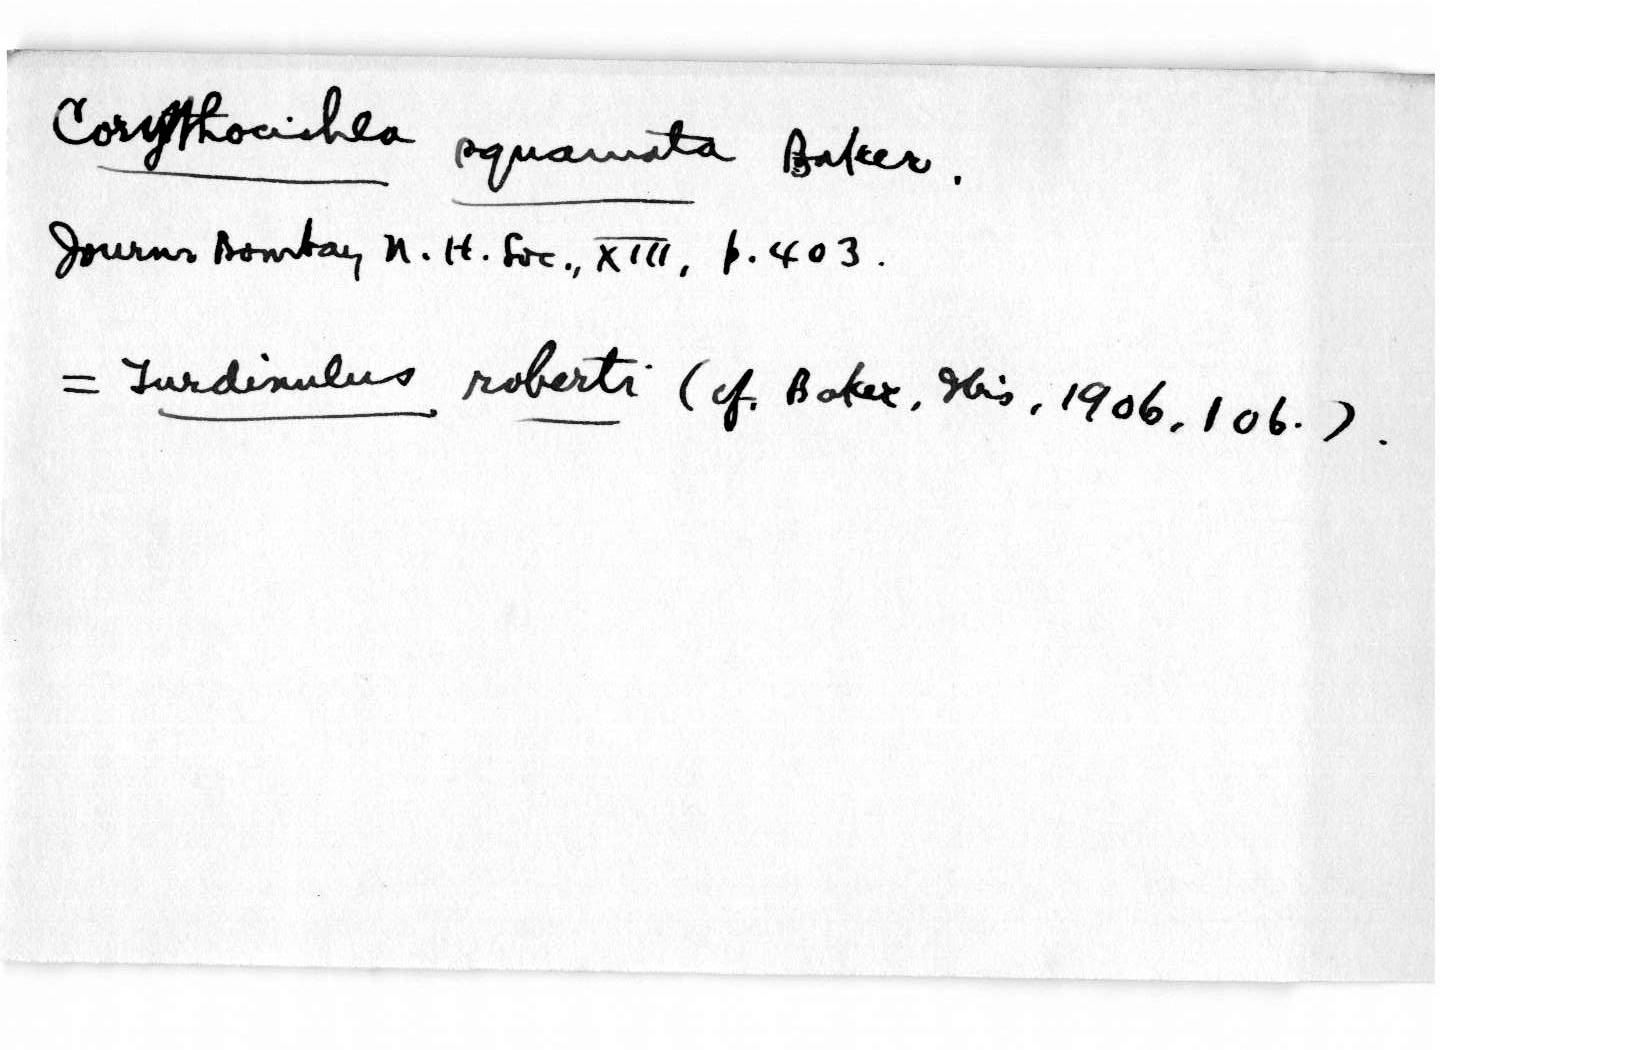 Corythocichla squamata Baker.
Journ. Bombay N. H. Soc., XIII, p. 403.
= Turdinulus roberti (cf. Baker, Ibis, 1906, 106.).